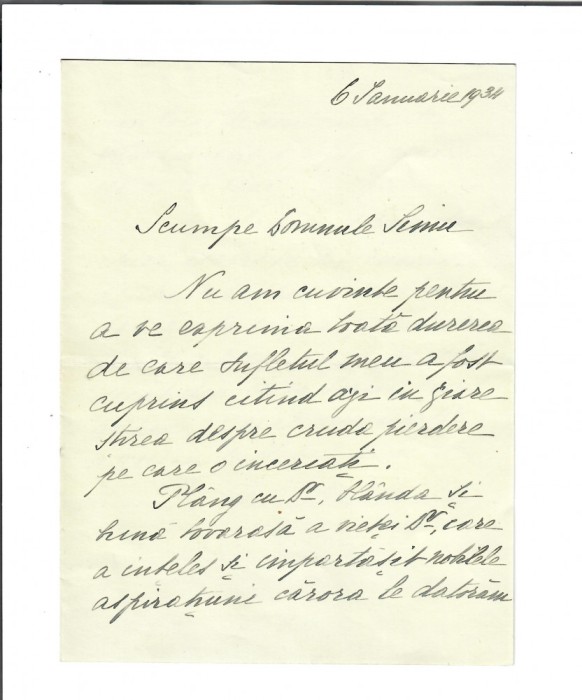 6 Ianuarie 1934
Scumpe Domnule Simu
Nu am cuvinte pentru
a ve exprima toată durerea
de care sufletul meu a fost
cuprins citind azi in ziare
stirea despre cruda pierdere
pe care o incercaţi.
Plâng cu Dv. blânda şi
bună tovarasă a vieţei Dv., care
a inteles şi impartăşit nobilele
aspiraţiuni cărora le datorăm